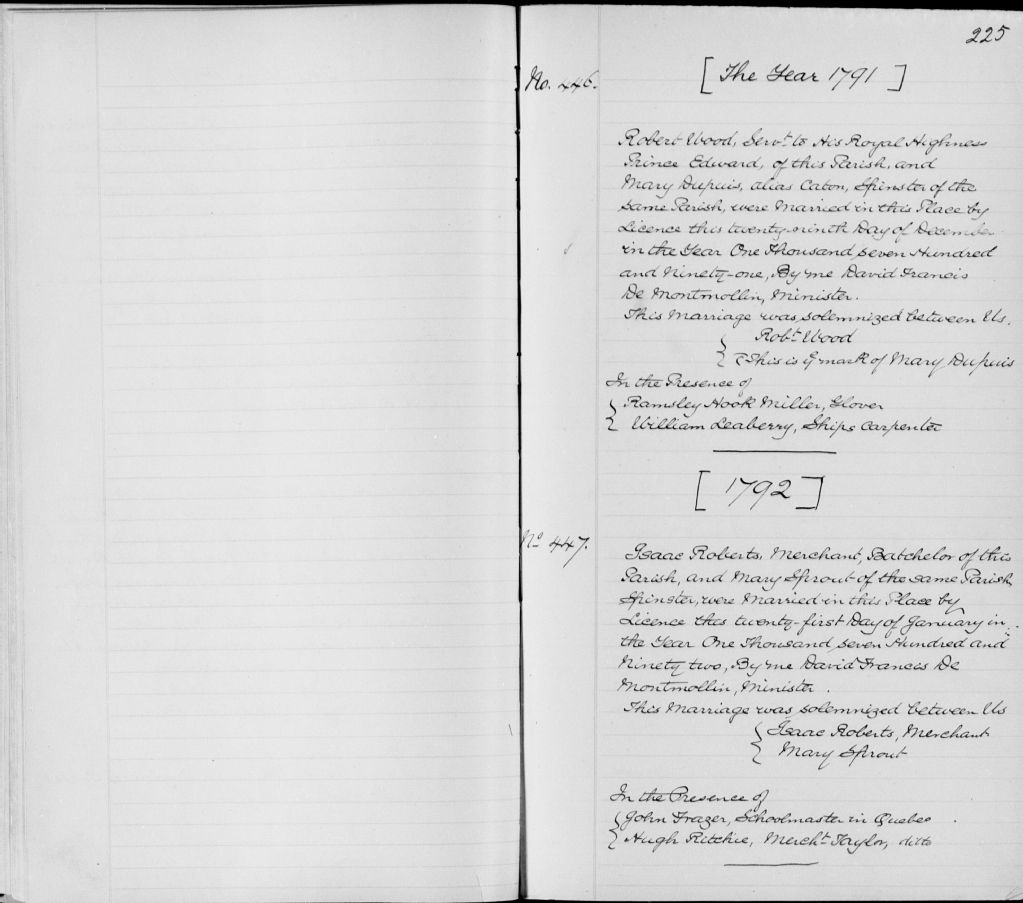 225
No. 446.
[The Year 1791]
Robert Wood, Servt. to His Royal Highness
Prince Edward, of this Parish, and
Mary Dupuis, alias Caton, Spinster of the
same Parish, were Married in this Place by
Licence this twenty-ninth Day of December
in the Year One Thousand seven Hundred
and Ninety-one, By me David Francis
De Montmollin, Minister.
This Marriage was solemnized between Us.
Robt. Wood
This is ye mark of Mary Dupuis
In the Presence of
Ramsley Hook Miller, Glover
William Leaberry, Ships Carpenter
[1792]
No. 447.
Isaac Roberts, Merchant, Batchelor of this
Parish, and Mary Sprout of the same Parish
Spinster, were Married in this Place by
Licence this twenty-first Day of January in
the Year One Thousand seven Hundred and
Ninety two, By me David Francis De
Montmollin, Minister.
This Marriage was solemnized between Us
Isaac Roberts, Merchant
Mary Sprout
In the Presence of
John Frazer, Schoolmaster in Quebec.
Hugh Ritchie, Mercht. Taylor, ditto